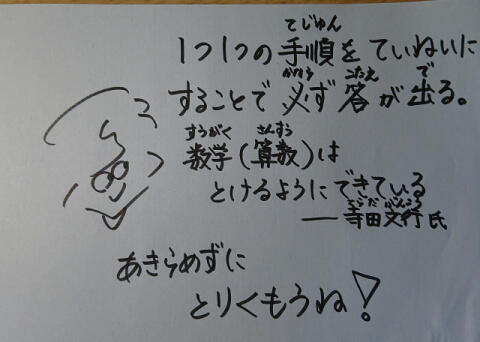 1つ1つの手順をていねいに
てじゅん
することで必ず答が出る。
かなら こたえ で
数学(算数)は
すうがく さんすう
とけるようにできている
——寺田文行氏
あきらめずに
とりくもうね!